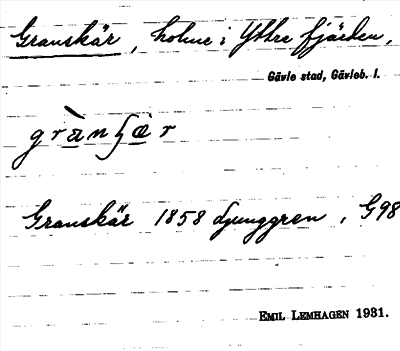 Granskär, holme i Yttre fjärden,
Gävle stad, Gävleb. l.
grànʃær
Granskär 1858 Ljunggren, G98
EMIL LEMHAGEN 1931.